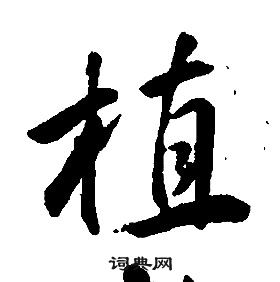 植
词典网